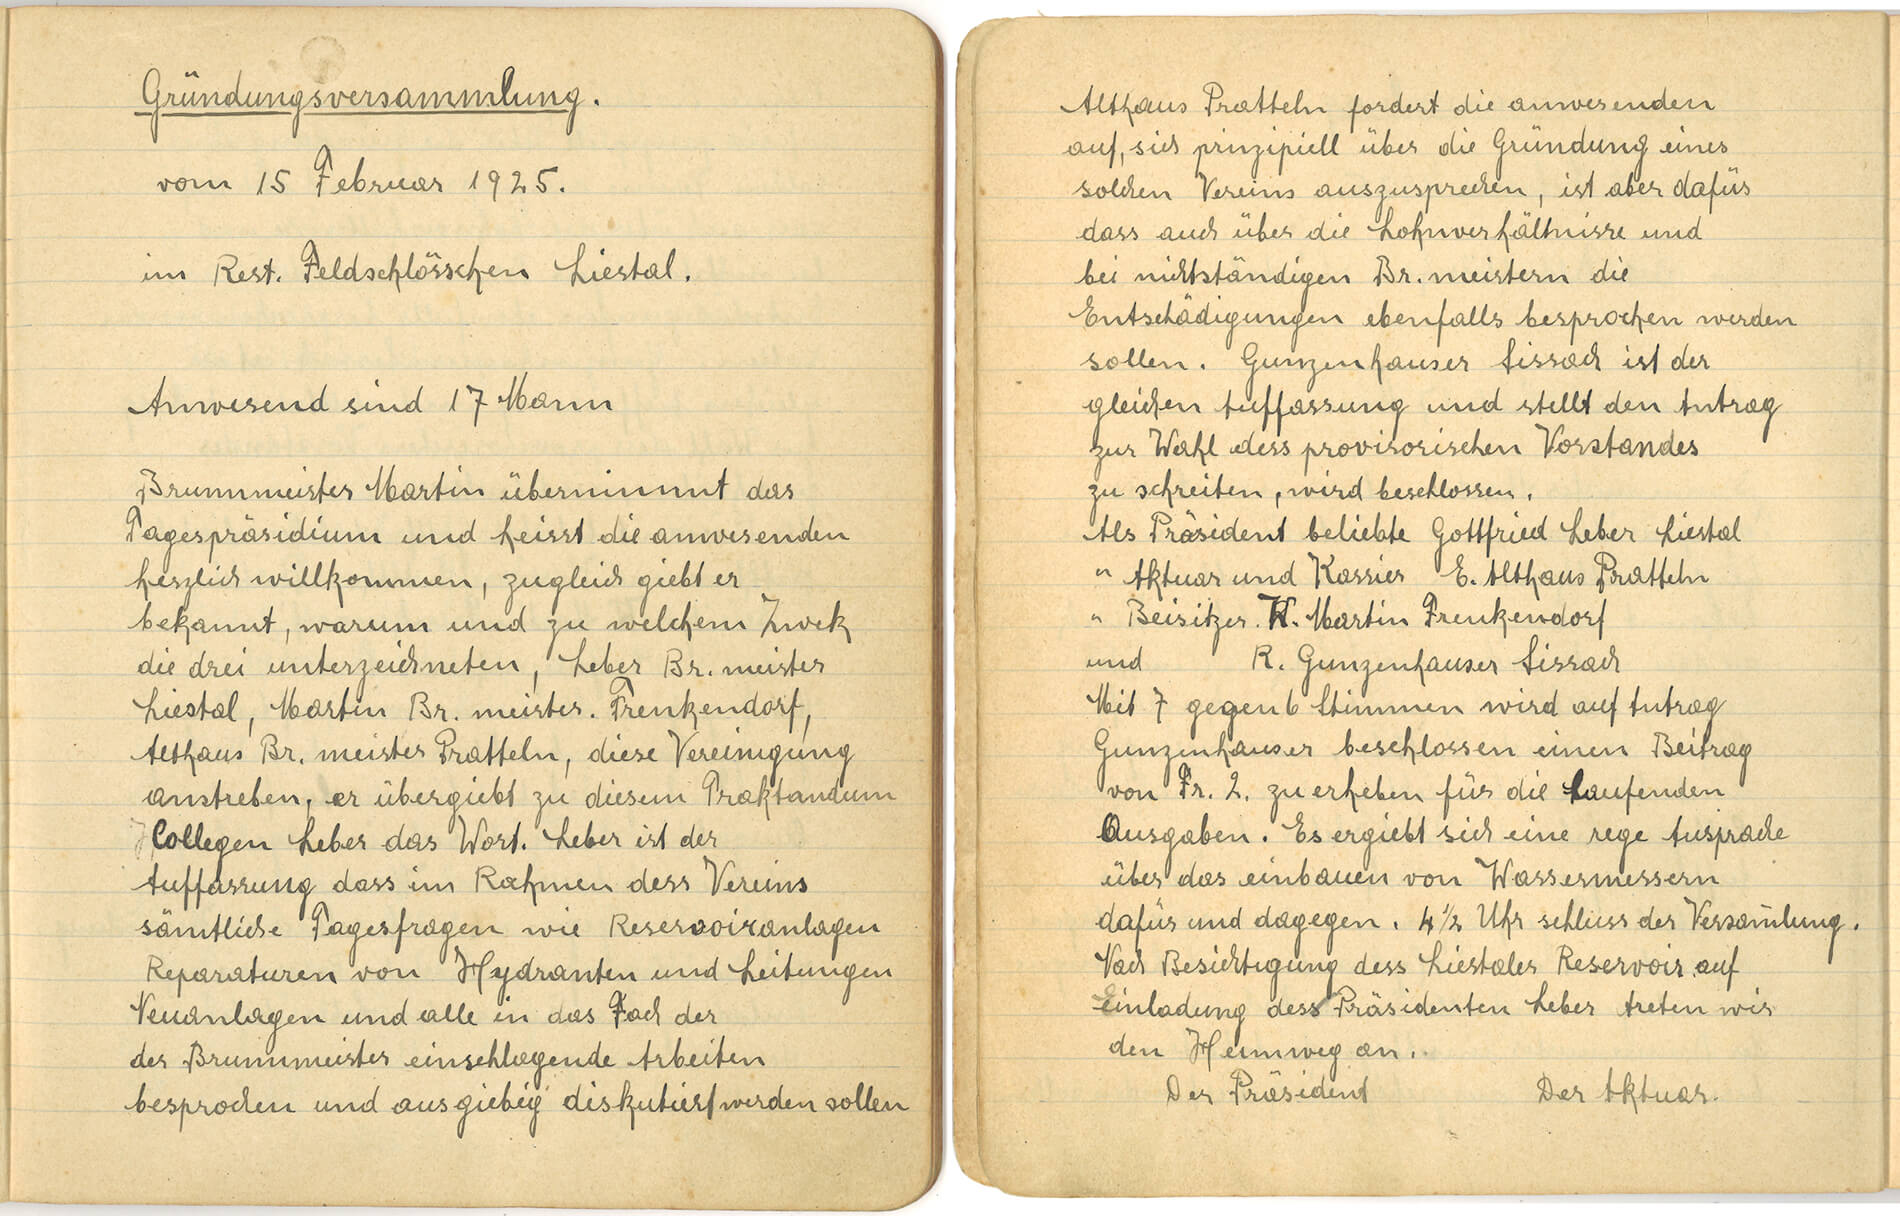 Gründungsversammlung.
vom 15 Februar 1925.
im Rest. Feldschlösschen Liestal.
Anwesend sind 17 Mann
Brunnmeister Martin übernimmt das
Tagespräsidium und heisst die anwesenden
herzlich willkommen, zugleich giebt er
bekannt, warum und zu welchem Zwek
die drei unterzeichneten, Leber Br. meister
Liestal, Martin Br. meister. Frenkendorf,
Althaus Br. meister Pratteln, diese Vereinigung
anstreben, er übergiebt zu diesem Traktandum
Collegen Leber das Wort. Leber ist der
Auffassung dass im Rahmen dess Vereins
sämtliche Tagesfragen wie Reservoiranlagen
Reparaturen von Hydranten und Leitungen
Neuanlagen und alle in das Fach der
der Brunnmeister einschlagende Arbeiten
besprochen und ausgiebig diskutiert werden sollen
Althaus Pratteln fordert die anwesenden
auf, sich prinzipiell über die Gründung eines
solchen Vereins auszusprechen, ist aber dafür
dass auch über die Lohnverhältnisse und
bei nichtständigen Br. meistern die
Entschädigungen ebenfalls besprochen werden
sollen. Gunzenhauser Sissach ist der
gleichen Auffassung und stellt den Antrag
zur Wahl dess provisorischen Vorstandes
zu schreiten, wird beschlossen.
Als Präsident beliebte Gottfried Leber Liestal
" Aktuar und Kassier E. Althaus Pratteln
" Beisitzer. K. Martin Frenkendorf
und R. Gunzenhauser Sissach
Mit 7 gegen 6 Stimmen wird auf Antrag
Gunzenhauser beschlossen einen Beitrag
von Fr. 2. zu erheben für die Laufenden
Ausgaben. Es ergiebt sich eine rege Ausprache
über das einbauen von Wassermessern
dafür und dagegen. 4½ Uhr schluss der Versam̄lung.
Nach Besichtigung dess Liestaler Reservoir auf
Einladung dess Präsidenten Leber treten wir
den Heimweg an.
Der Präsident Der Aktuar.